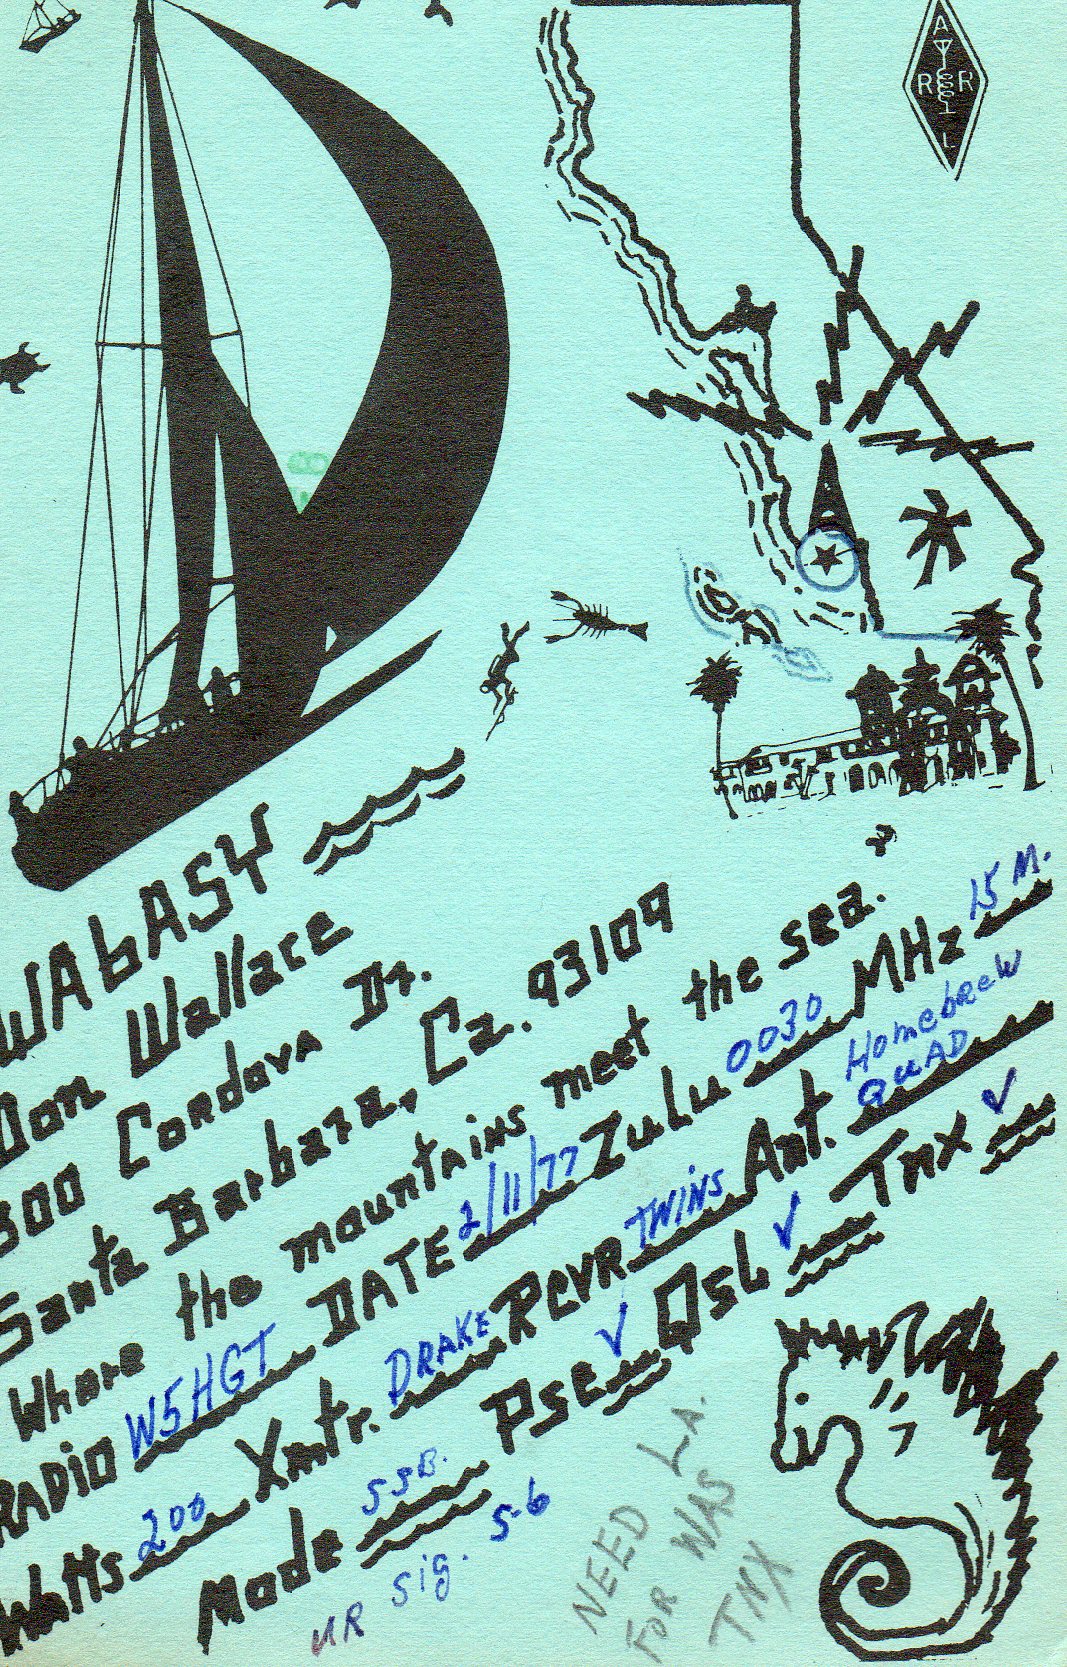 A
R R
L
WA6ASY
Don Wallace
300 Cordova Dr.
Santa Barbara, Ca. 93109
Where the mountains meet the sea.
RADIO W5HGT DATE 2/11/77 Zulu 0030 MHz 15 M.
Watts 200 Xmtr. DRAKE RCVR TWINS Ant. Homebrew QUAD
Mode SSB. Pse ✓ QSL ✓ Tnx ✓
UR sig. 5-6
NEED LA.
FOR WAS
TNX